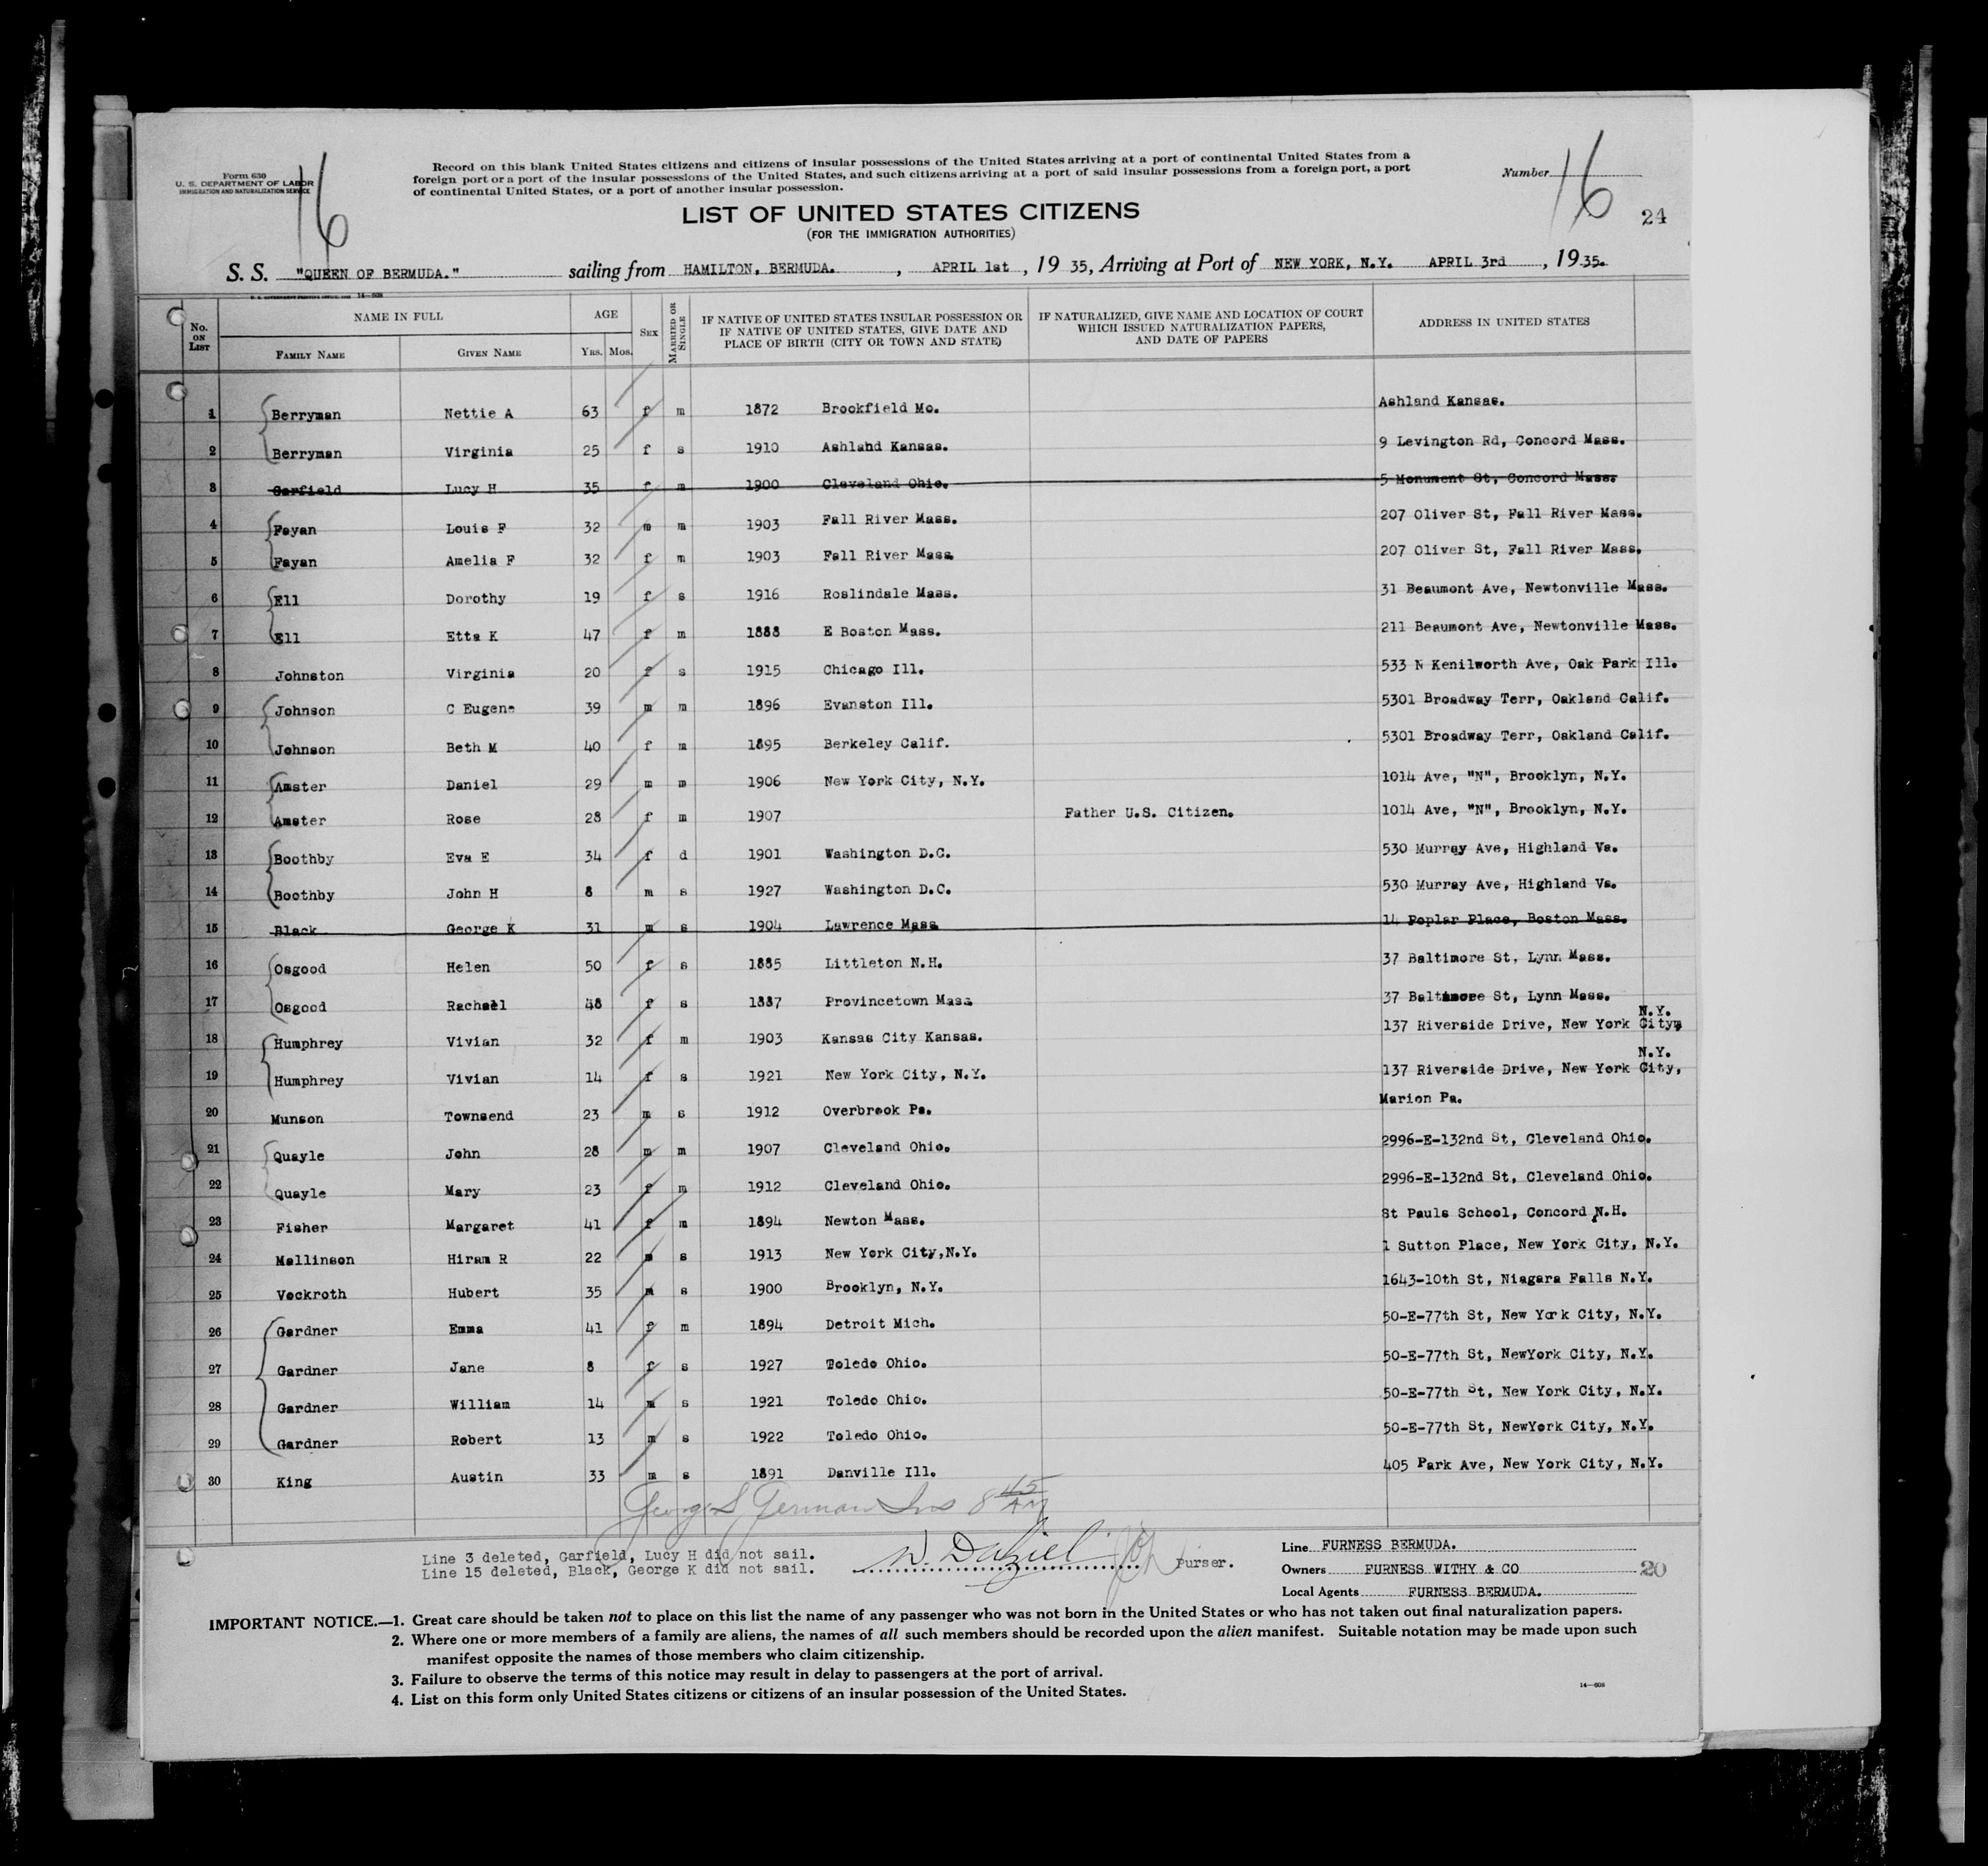 Form 630
U. S. DEPARTMENT OF LABOR
IMMIGRATION AND NATURALIZATION SERVICE
16
Record on this blank United States citizens and citizens of insular possessions of the United States arriving at a port of continental United States from a
foreign port or a port of the insular possessions of the United States, and such citizens arriving at a port of said insular possessions from a foreign port, a port
of continental United States, or a port of another insular possession.
Number 16
24
LIST OF UNITED STATES CITIZENS
(FOR THE IMMIGRATION AUTHORITIES)
S. S. "QUEEN OF BERMUDA." sailing from HAMILTON, BERMUDA. , APRIL 1st , 19 35, Arriving at Port of NEW YORK, N.Y. APRIL 3rd , 19 35.
No. ON LIST NAME IN FULL FAMILY NAME GIVEN NAME AGE YRS. MOS. SEX MARRIED OR SINGLE IF NATIVE OF UNITED STATES INSULAR POSSESSION OR IF NATIVE OF UNITED STATES, GIVE DATE AND PLACE OF BIRTH (CITY OR TOWN AND STATE) IF NATURALIZED, GIVE NAME AND LOCATION OF COURT WHICH ISSUED NATURALIZATION PAPERS, AND DATE OF PAPERS ADDRESS IN UNITED STATES
1 Berryman Nettie A 63 f m 1872 Brookfield Mo. Ashland Kansas.
2 Berryman Virginia 25 f s 1910 Ashland Kansas. 9 Levington Rd, Concord Mass.
3 Garfield Lucy H 35 f m 1900 Cleveland Ohio. 5 Monument St, Concord Mass.
4 Fayan Louis F 32 m m 1903 Fall River Mass. 207 Oliver St, Fall River Mass.
5 Fayan Amelia F 32 f m 1903 Fall River Mass 207 Oliver St, Fall River Mass.
6 Ell Dorothy 19 f s 1916 Roslindale Mass. 31 Beaumont Ave, Newtonville Mass.
7 Ell Etta K 47 f m 1888 E Boston Mass. 211 Beaumont Ave, Newtonville Mass.
8 Johnston Virginia 20 f s 1915 Chicago Ill. 533 N Kenilworth Ave, Oak Park Ill.
9 Johnson C Eugene 39 m m 1896 Evanston Ill. 5301 Broadway Terr, Oakland Calif.
10 Johnson Beth M 40 f m 1895 Berkeley Calif. 5301 Broadway Terr, Oakland Calif.
11 Amster Daniel 29 m m 1906 New York City, N.Y. 1014 Ave, "N", Brooklyn, N.Y.
12 Amster Rose 28 f m 1907 Father U.S. Citizen. 1014 Ave, "N", Brooklyn, N.Y.
13 Boothby Eva E 34 f d 1901 Washington D.C. 530 Murray Ave, Highland Va.
14 Boothby John H 8 m s 1927 Washington D.C. 530 Murray Ave, Highland Va.
15 Black George K 31 m s 1904 Lawrence Mass 14 Poplar Place, Boston Mass.
16 Osgood Helen 50 f s 1885 Littleton N.H. 37 Baltimore St, Lynn Mass.
17 Osgood Rachael 48 f s 1887 Provincetown Mass 37 Baltimore St, Lynn Mass.
18 Humphrey Vivian 32 f m 1903 Kansas City Kansas. 137 Riverside Drive, New York City, N.Y.
19 Humphrey Vivian 14 f s 1921 New York City, N.Y. 137 Riverside Drive, New York City, N.Y.
20 Munson Townsend 23 m s 1912 Overbrook Pa. Marion Pa.
21 Quayle John 28 m m 1907 Cleveland Ohio. 2996-E-132nd St, Cleveland Ohio.
22 Quayle Mary 23 f m 1912 Cleveland Ohio. 2996-E-132nd St, Cleveland Ohio.
23 Fisher Margaret 41 f m 1894 Newton Mass. St Pauls School, Concord, N.H.
24 Mallinson Hiram R 22 m s 1913 New York City,N.Y. 1 Sutton Place, New York City, N.Y.
25 Vockroth Hubert 35 m s 1900 Brooklyn, N.Y. 1643-10th St, Niagara Falls N.Y.
26 Gardner Emma 41 f m 1894 Detroit Mich. 50-E-77th St, New York City, N.Y.
27 Gardner Jane 8 f s 1927 Toledo Ohio. 50-E-77th St, NewYork City, N.Y.
28 Gardner William 14 m s 1921 Toledo Ohio. 50-E-77th St, New York City, N.Y.
29 Gardner Robert 13 m s 1922 Toledo Ohio. 50-E-77th St, NewYork City, N.Y.
30 King Austin 33 m s 1891 Danville Ill. 405 Park Ave, New York City, N.Y.
George S German Ins 8 45 AM
Line 3 deleted, Garfield, Lucy H did not sail.
Line 15 deleted, Black, George K did not sail.
W. Dalziel Purser.
Line FURNESS BERMUDA.
Owners FURNESS WITHY & CO
20
Local Agents FURNESS BERMUDA.
IMPORTANT NOTICE.—1. Great care should be taken not to place on this list the name of any passenger who was not born in the United States or who has not taken out final naturalization papers.
2. Where one or more members of a family are aliens, the names of all such members should be recorded upon the alien manifest. Suitable notation may be made upon such
manifest opposite the names of those members who claim citizenship.
3. Failure to observe the terms of this notice may result in delay to passengers at the port of arrival.
4. List on this form only United States citizens or citizens of an insular possession of the United States.
14—608